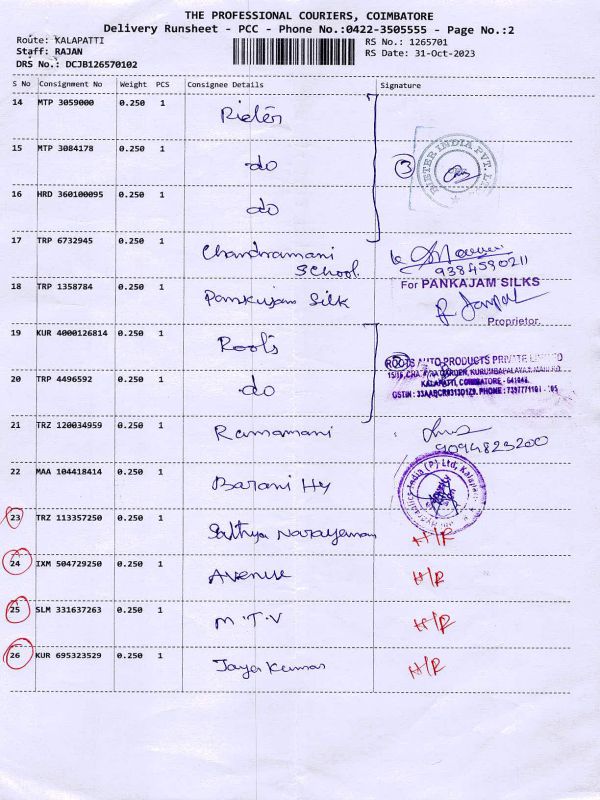 THE PROFESSIONAL COURIERS, COIMBATORE
Delivery Runsheet - PCC - Phone No.:0422-3505555 - Page No.:2
Route: KALAPATTI RS No.: 1265701
Staff: RAJAN RS Date: 31-Oct-2023
DRS No.: DCJB126570102
S No Consignment No Weight PCS Consignee Details Signature
14 MTP 3059000 0.250 1 Rieter
15 MTP 3084178 0.250 1 do 3 RIETER INDIA PVT. LTD.
16 HRD 360100095 0.250 1 do
17 TRP 6732945 0.250 1 Chandramani
School 9384590211
18 TRP 1358784 0.250 1 Pankujam Silk For PANKAJAM SILKS
Proprietor.
19 KUR 4000126814 0.250 1 Roots
ROOTS AUTO PRODUCTS PRIVATE LIMITED
KALAPATTI, COIMBATORE - 641048.
20 TRP 4496592 0.250 1 do
21 TRZ 120034959 0.250 1 Ramamani 9094823200
22 MAA 104418414 0.250 1 Barani Hy India (P) Ltd, Kalapatti
23 TRZ 113357250 0.250 1 Sathya Narayanan H/R
24 IXM 504729250 0.250 1 Avenue H/R
25 SLM 331637263 0.250 1 M.T.V H/R
26 KUR 695323529 0.250 1 Jaya Kumar H/R